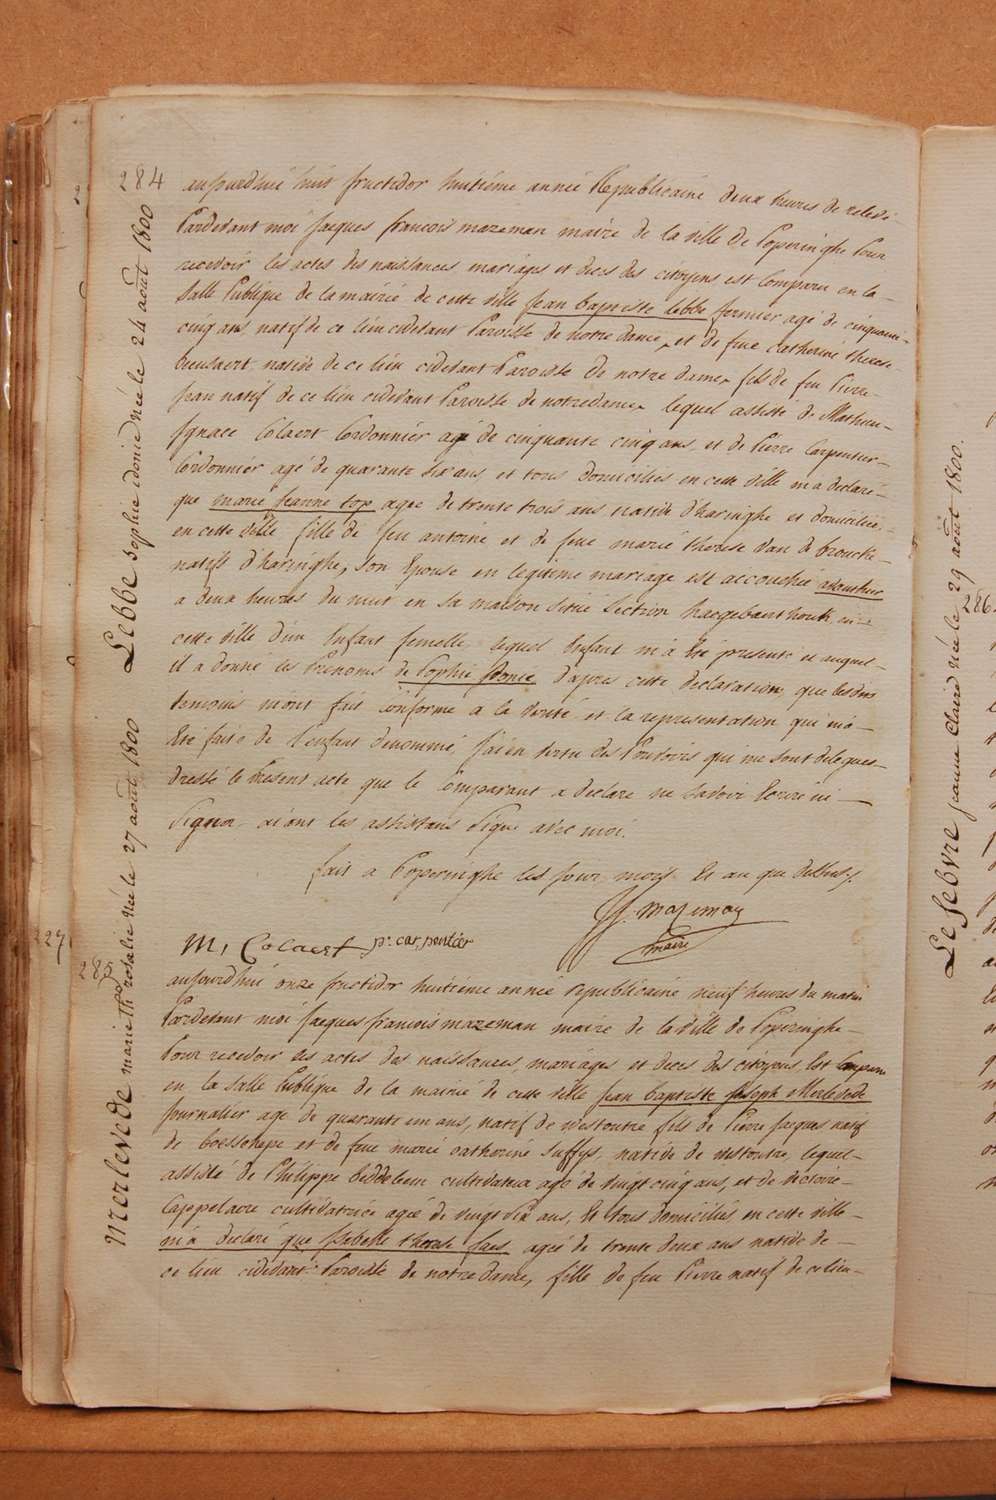 284
Lebbe sophie idonie née le 24 août 1800
aujourd'hui huit fructidor huitiéme année Republicaine deux heures de relevé
Pardevant moi Jacques francois mazeman maire de la ville de Poperinghe Pour
recevoir les actes des naissances mariages et deces des citoyens est Comparu en la
Salle Publique de la mairie de cette ville Jean baptiste lebbe fermier agé de cinquante
cinq ans natif de ce lieu cidevant Paroisse de notre dame, et de feue catherine therese
natife de ce lieu cidevant Paroisse de notre dame, fils de feu Pierre
Jean natif de ce lieu cidevant Paroisse de notre dame, lequel assisté de Mathieu
Ignace Colaert Cordonnier agé de cinquante cinq ans, et de Pierre Carpentier
Cordonnier agé de quarante six ans, et tous domiciliés en cette ville m'a declaré
que marie Jeanne top agee de trente trois ans, native d'haringhe et domiciliée
en cette ville fille de feu antoine et de feue marie therese Van de brouck
natifs d'haringhe, Son Epouse en legitime mariage est accouchée
a deux heures du nuit en sa maison située Section haegebaerthouk en
cette ville d'un Enfant femelle, lequel Enfant m'a été presenté et auquel
il a donné les Prenoms de Sophie Idonie d'apres cette declaration que lesdits
temoins m'ont fait conforme a la verité et la representation qui m'a
été faite de l'enfant denommé, J'ai en vertu des Pouvoirs qui me sont delegues
dressé le Present acte que le Comparant a declaré ne Savoir Ecrire ni
Signer, aiant les assistans Signé avec moi.
fait a Poperinghe les jour mois Et an que dessus.
J. mazeman
maire
M, Colaert pr carpentier
227
285
Merlevede marie th rosalie née le 27 août 1800
aujourd'hui onze fructidor huitiéme année republicaine neuf heures du matin
Pardevant moi Jacques francois mazeman maire de la ville de Poperinghe
Pour recevoir les actes des naissances, mariages et deces des citoyens Est Comparu
en la Salle Publique de la mairie de cette ville Jean baptiste Joseph Merlevede
Journalier agé de quarante un ans, natif de westoutre fils de Pierre Jacques natif
de boesschepe et de feue marie catherine Suffys, native de westoutre, lequel
assisté de Philippe cultivateur agé de vingt cinq ans, et de victoire
Cappelaere cultivatrice agée de vingt six ans, Et tous domiciliés en cette ville
m'a declaré que Isabelle therese faes agée de trente deux ans native de
ce lieu cidevant Paroisse de notre dame, fille de feu Pierre natif de ce lieu
Lefebvre jeanne Claire née le 29 août 1800.
286